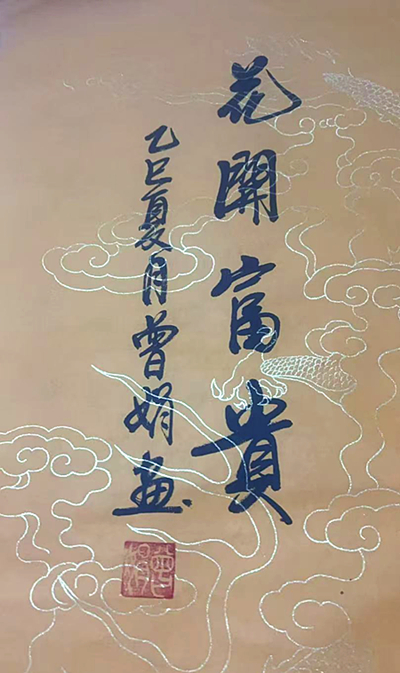 花開富貴
乙巳夏月曾娟畫